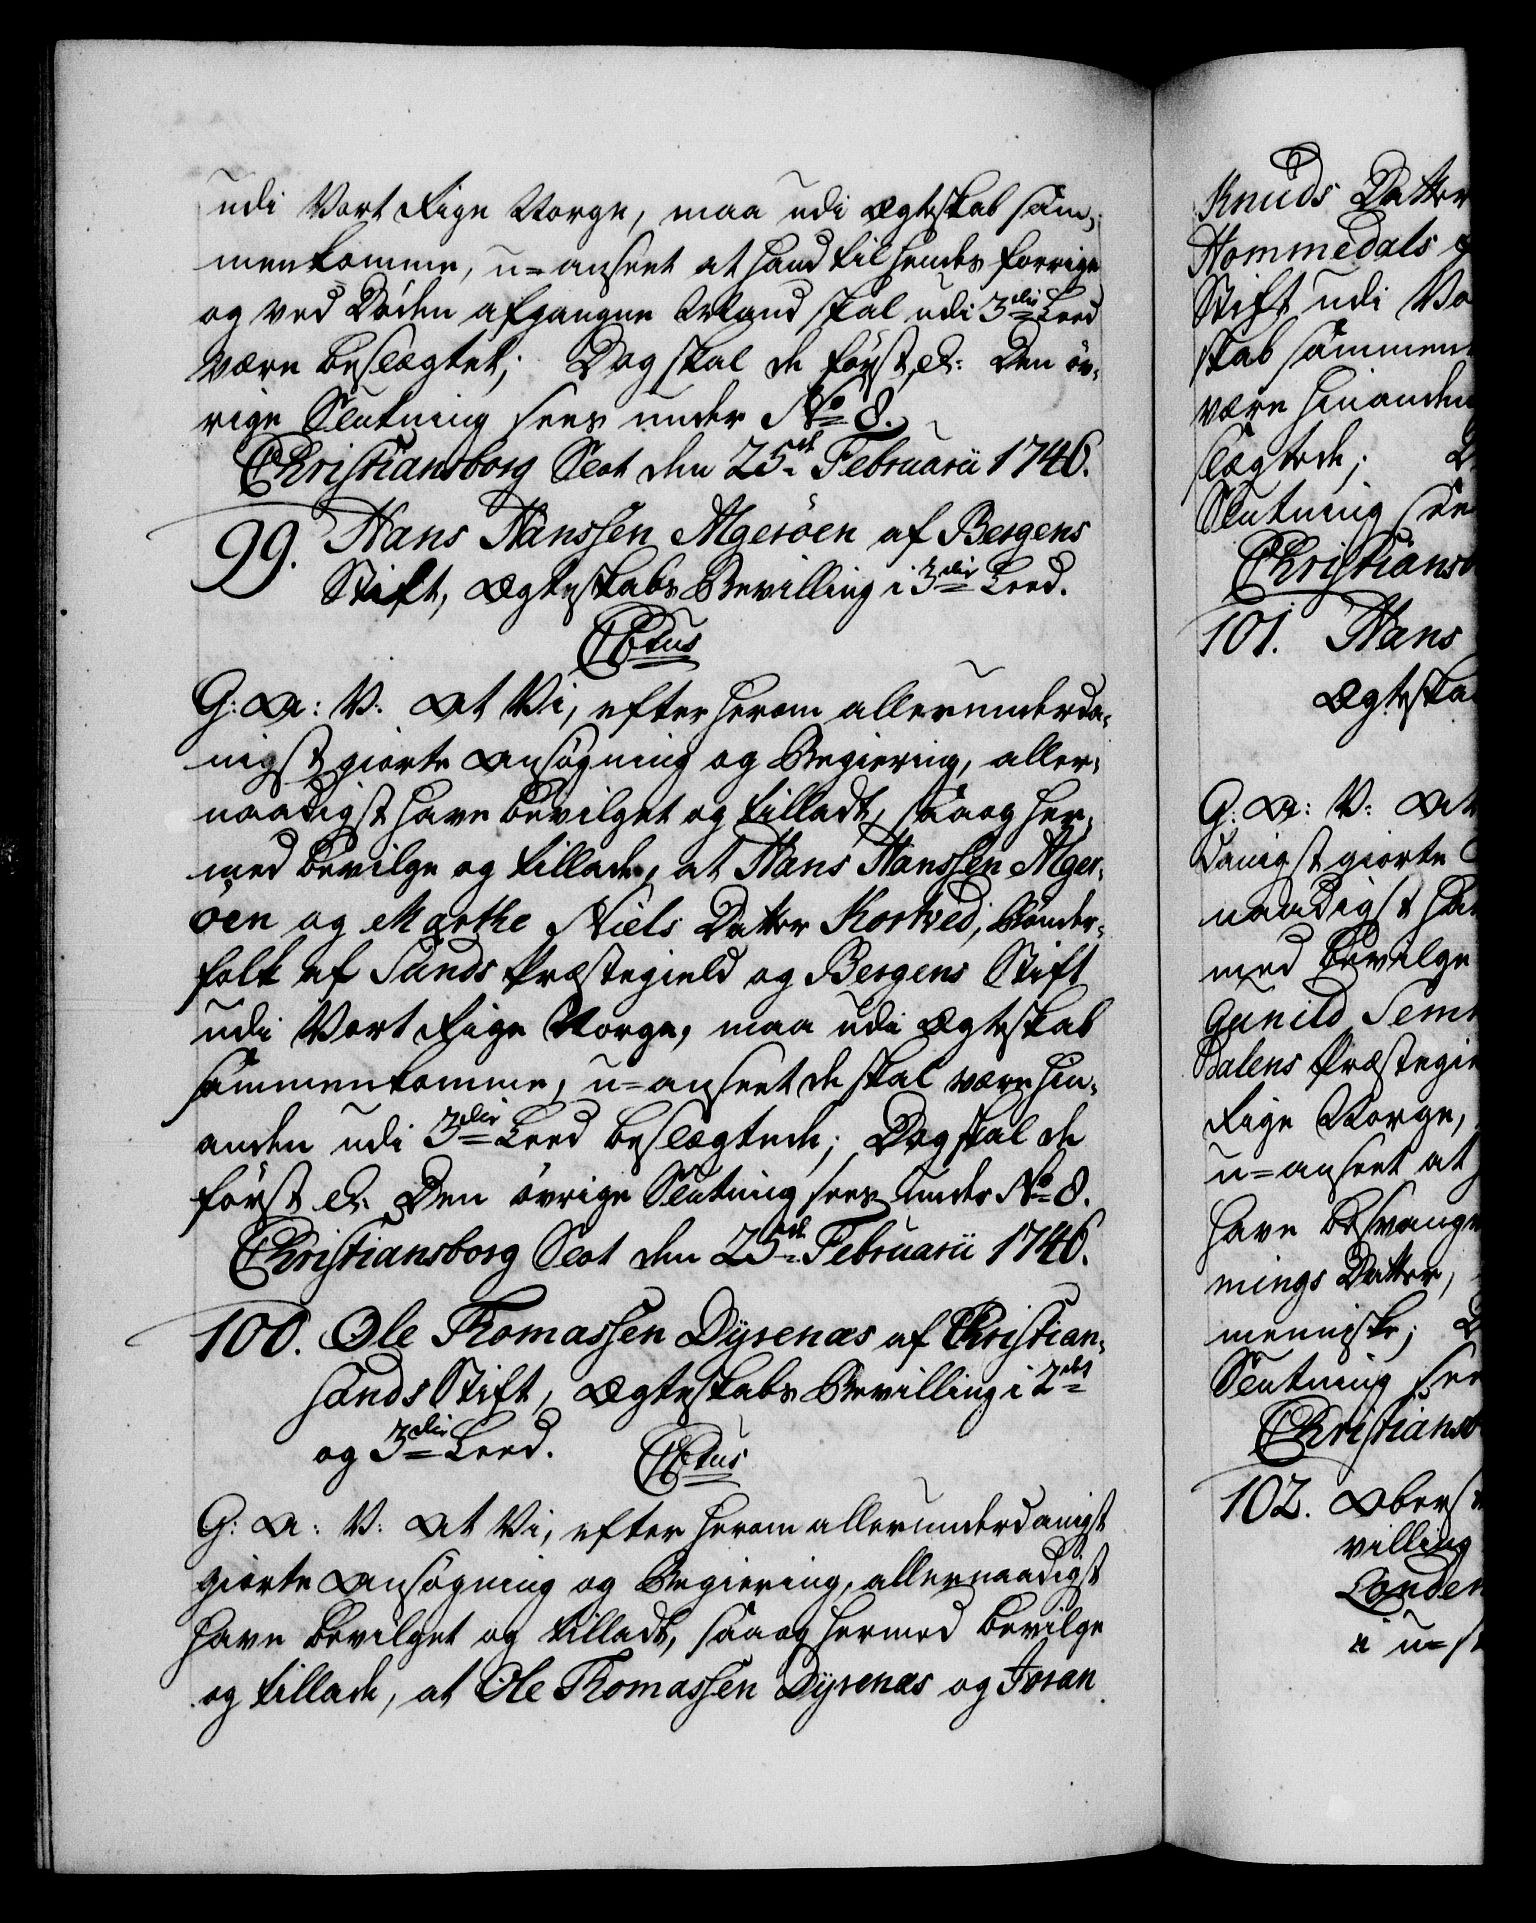 udi Vort Rige Norge, maa udi Ægteskab sam-
menkomme, u=anseet at hand til hendes forrige
og ved Døden afgangne Mand skal udi 3die Leed
være beslægtet; Dog skal de først, &: Den öv-
rige Slutning sees under No 8.
Christiansborg Slot den 25de Februarii 1746.
99. Hans Hanssen Algeröen af Bergens
Stift, Ægteskabs Bevilling i 3die Leed.
C 6tus
G: A: V: At Vi, efter herom allerunderda-
nigst giorte Ansøgning og Begiering, aller-
naadigst have bevilget og tilladt, saa og her-
med bevilge og tillade, at Hans Hanssen Alger-
öen og Marthe Niels Datter Kortved, Bönder-
folk af Sunds Præstegield og Bergens Stift
udi Vort Rige Norge, maa udi Ægteskab
sammenkomme, u=anseet de skal være hin-
anden udi 3die Leed beslægtede; Dog skal de
först &: Den övrige Slutning sees under No 8.
Christiansborg Slot den 25de Februarii 1746.
100. Ole Thomassen Dyrenæs af Christian-
sands Stift, Ægteskabs Bevilling i 2det
og 3die Leed.
C 6tus
G: A: V: At Vi, efter herom allerunderdanigst
giorte Ansøgning og Begiering, allernaadigst
have bevilget og tilladt, saa og hermed bevilge
og tillade, at Ole Thomassen Dyrenæs og Joran
Knuds Datter
Hommedals
Stift udi Vo
skab sammen
være hinanden
slægtede; D
Slutning see
Christiansb
101. Hans
Ægteska
G: A: V: At
danigst giorte
naadigst ha
med bevilge
Gunild Sem
dalens Præstegie
Rige Norge,
u=anseet at
have besvang
mings Datter,
menniske; D
Slutning see
Christiansb
102. Oberst
villing
Londen
i u=s